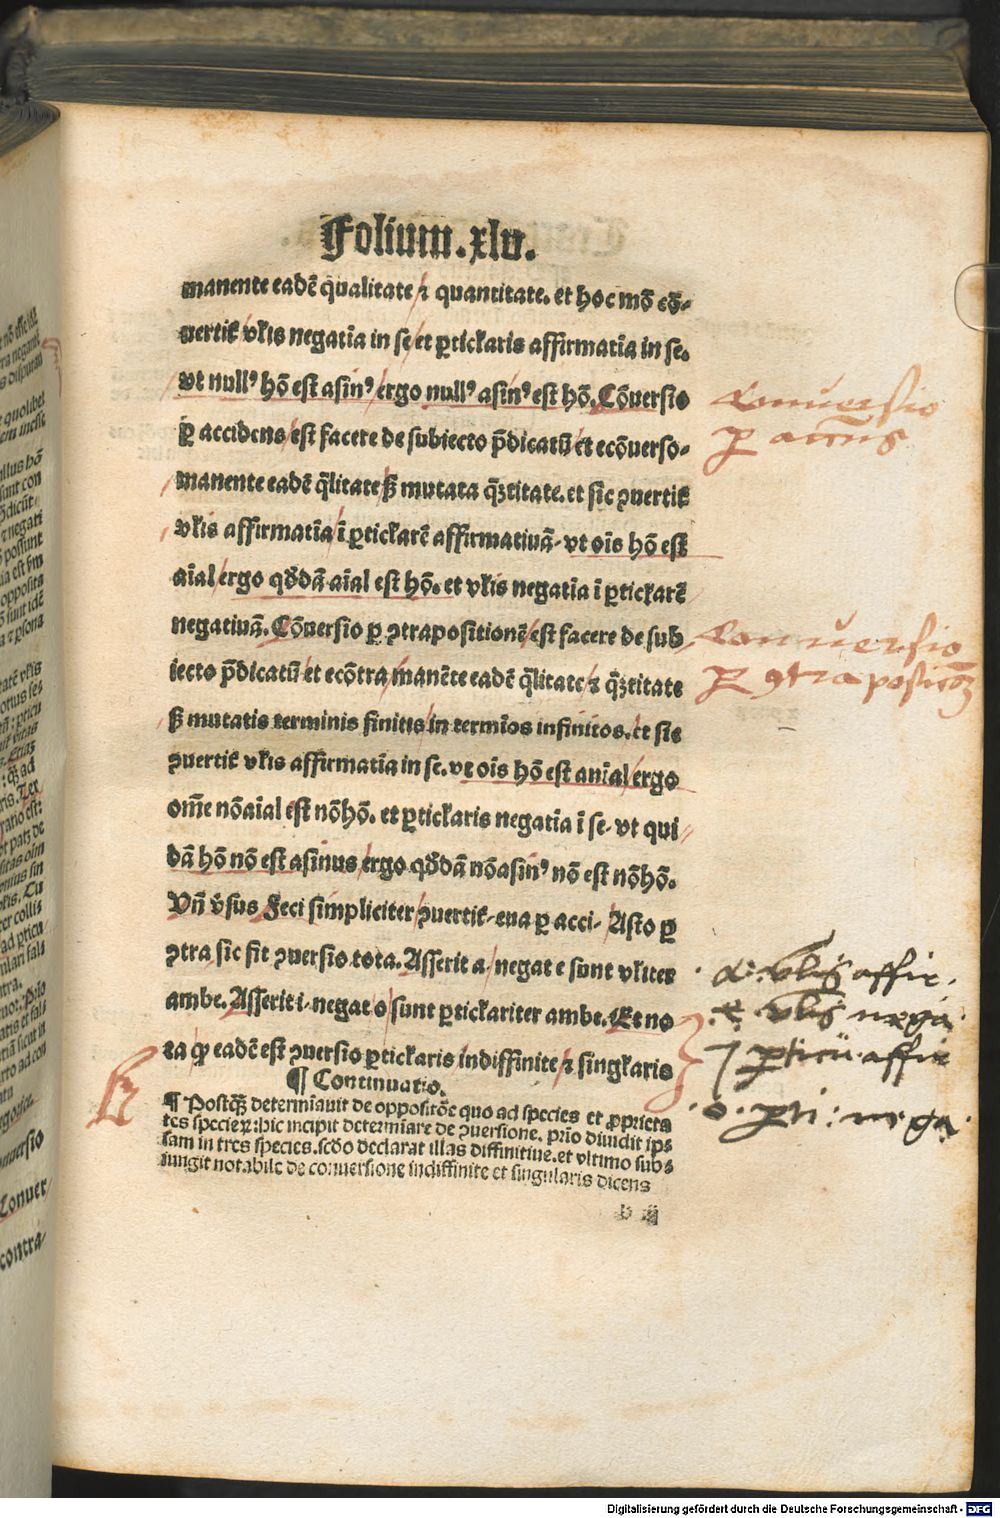 Folium. xlv.
manente eadē qualitate ⁊ quantitate. et hoc mō cō-
uertit̄ vl̄is negatīa in se et ꝑticl̄aris affirmatīa in se.
vt nullꝰ hō est asinꝰ ergo nullꝰ asinꝰ est hō. Cōuersio
ꝑ accidens est facere de subiecto p̄dicatū et ecōuerso-
manente eadē q̄litate ꝫ mutata q̄ꝫtitate. et sic ꝯuertit̄
vl̄is affirmatīa ī ꝑticl̄arē affirmatiuā. vt oīs hō est
aīal ergo qd̄dā aīal est hō. et vl̄is negatīa ī ꝑticl̄arē
negatiuā. Cōuersio ꝑ ꝯtrapositionē est facere de sub
iecto p̄dicatū et ecōtra manēte eadē q̄litate ⁊ q̄ꝫtitate
ꝫ mutatis terminis finitis in termīos infinitos. et sic
ꝯuertit̄ vl̄is affirmatīa in se. vt oīs hō est anīal ergo
om̄e nōaīal est nōhō. et ꝑticl̄aris negatīa ī se. vt qui
dā hō nō est asinus ergo qd̄dā nōasinꝰ nō est nōhō.
Vn̄ v̄sus Feci simpliciter ꝯuertit̄. eua ꝑ acci. Asto ꝑ
ꝯtra sic fit ꝯuersio tota. Asserit a. negat e sunt vl̄iter
ambe. Asserit i. negat o sunt ꝑticl̄ariter ambe. Et no
ta ꝙ eadē est ꝯuersio ꝑticl̄aris indiffinite ⁊ singl̄aris
¶ Continuatio.
¶ Postq̄ꝫ determīauit de oppositōe quo ad species et ꝓprieta
tes specieꝝ: hic incipit determīare de ꝯuersione. prīo diuidit ip-
sam in tres species. scd̄o declarat illas diffinitiue. et vltimo sub-
iungit notabile de conuersione indiffinite et singularis dicens
Conuersio
ꝑ accn̄s
Conuersio
ꝑ ꝯtraposicōꝫ
a. vl̄is affir.
e. vl̄is nega.
ꝑticū. affir
o. ꝑti: nega.
Digitalisierung gefördert durch die Deutsche Forschungsgemeinschaft - DFG